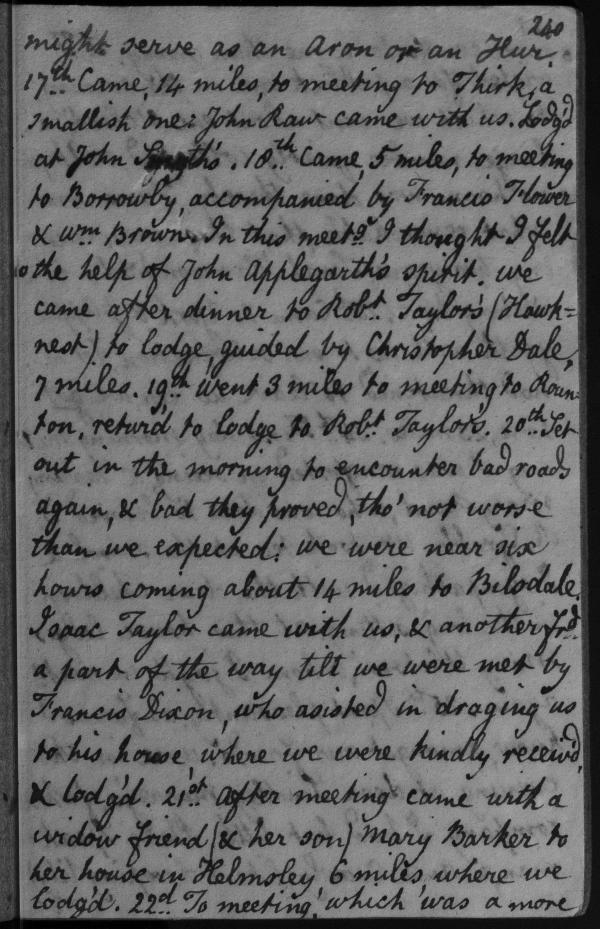 240
might serve as an Aron or an Hur.
17th. Came, 14 miles, to meeting to Thirk, a
smallish one: John Raw came with us. Lodg'd
at John Smyth's. 18th. Came, 5 miles, to meeting
to Borrowby, accompanied by Francis Flower
& Wm Brown. In this meetg. I thought I felt
the help of John Applegarth's spirit. we
came after dinner to Robt. Taylor's (Hawk=
nest) to lodge, guided by Christopher Dale,
7 miles. 19th. went 3 miles to meeting to Roun=
ton, returd to lodge to Robt. Taylors. 20th. Set
out in the morning to encounter bad roads
again, & bad they proved, tho' not worse
than we expected: we were near six
hours coming about 14 miles to Bilsdale.
Isaac Taylor came with us, & another frd.
a part of the way till we were met by
Francis Dixon, who asisted in draging us
to his house, where we were kindly receiv'd,
& lodg'd. 21st. After meeting came with a
widow friend (& her son) Mary Barker to
her house in Helmsley 6 miles, where we
lodg'd. 22d. To meeting, which was a more